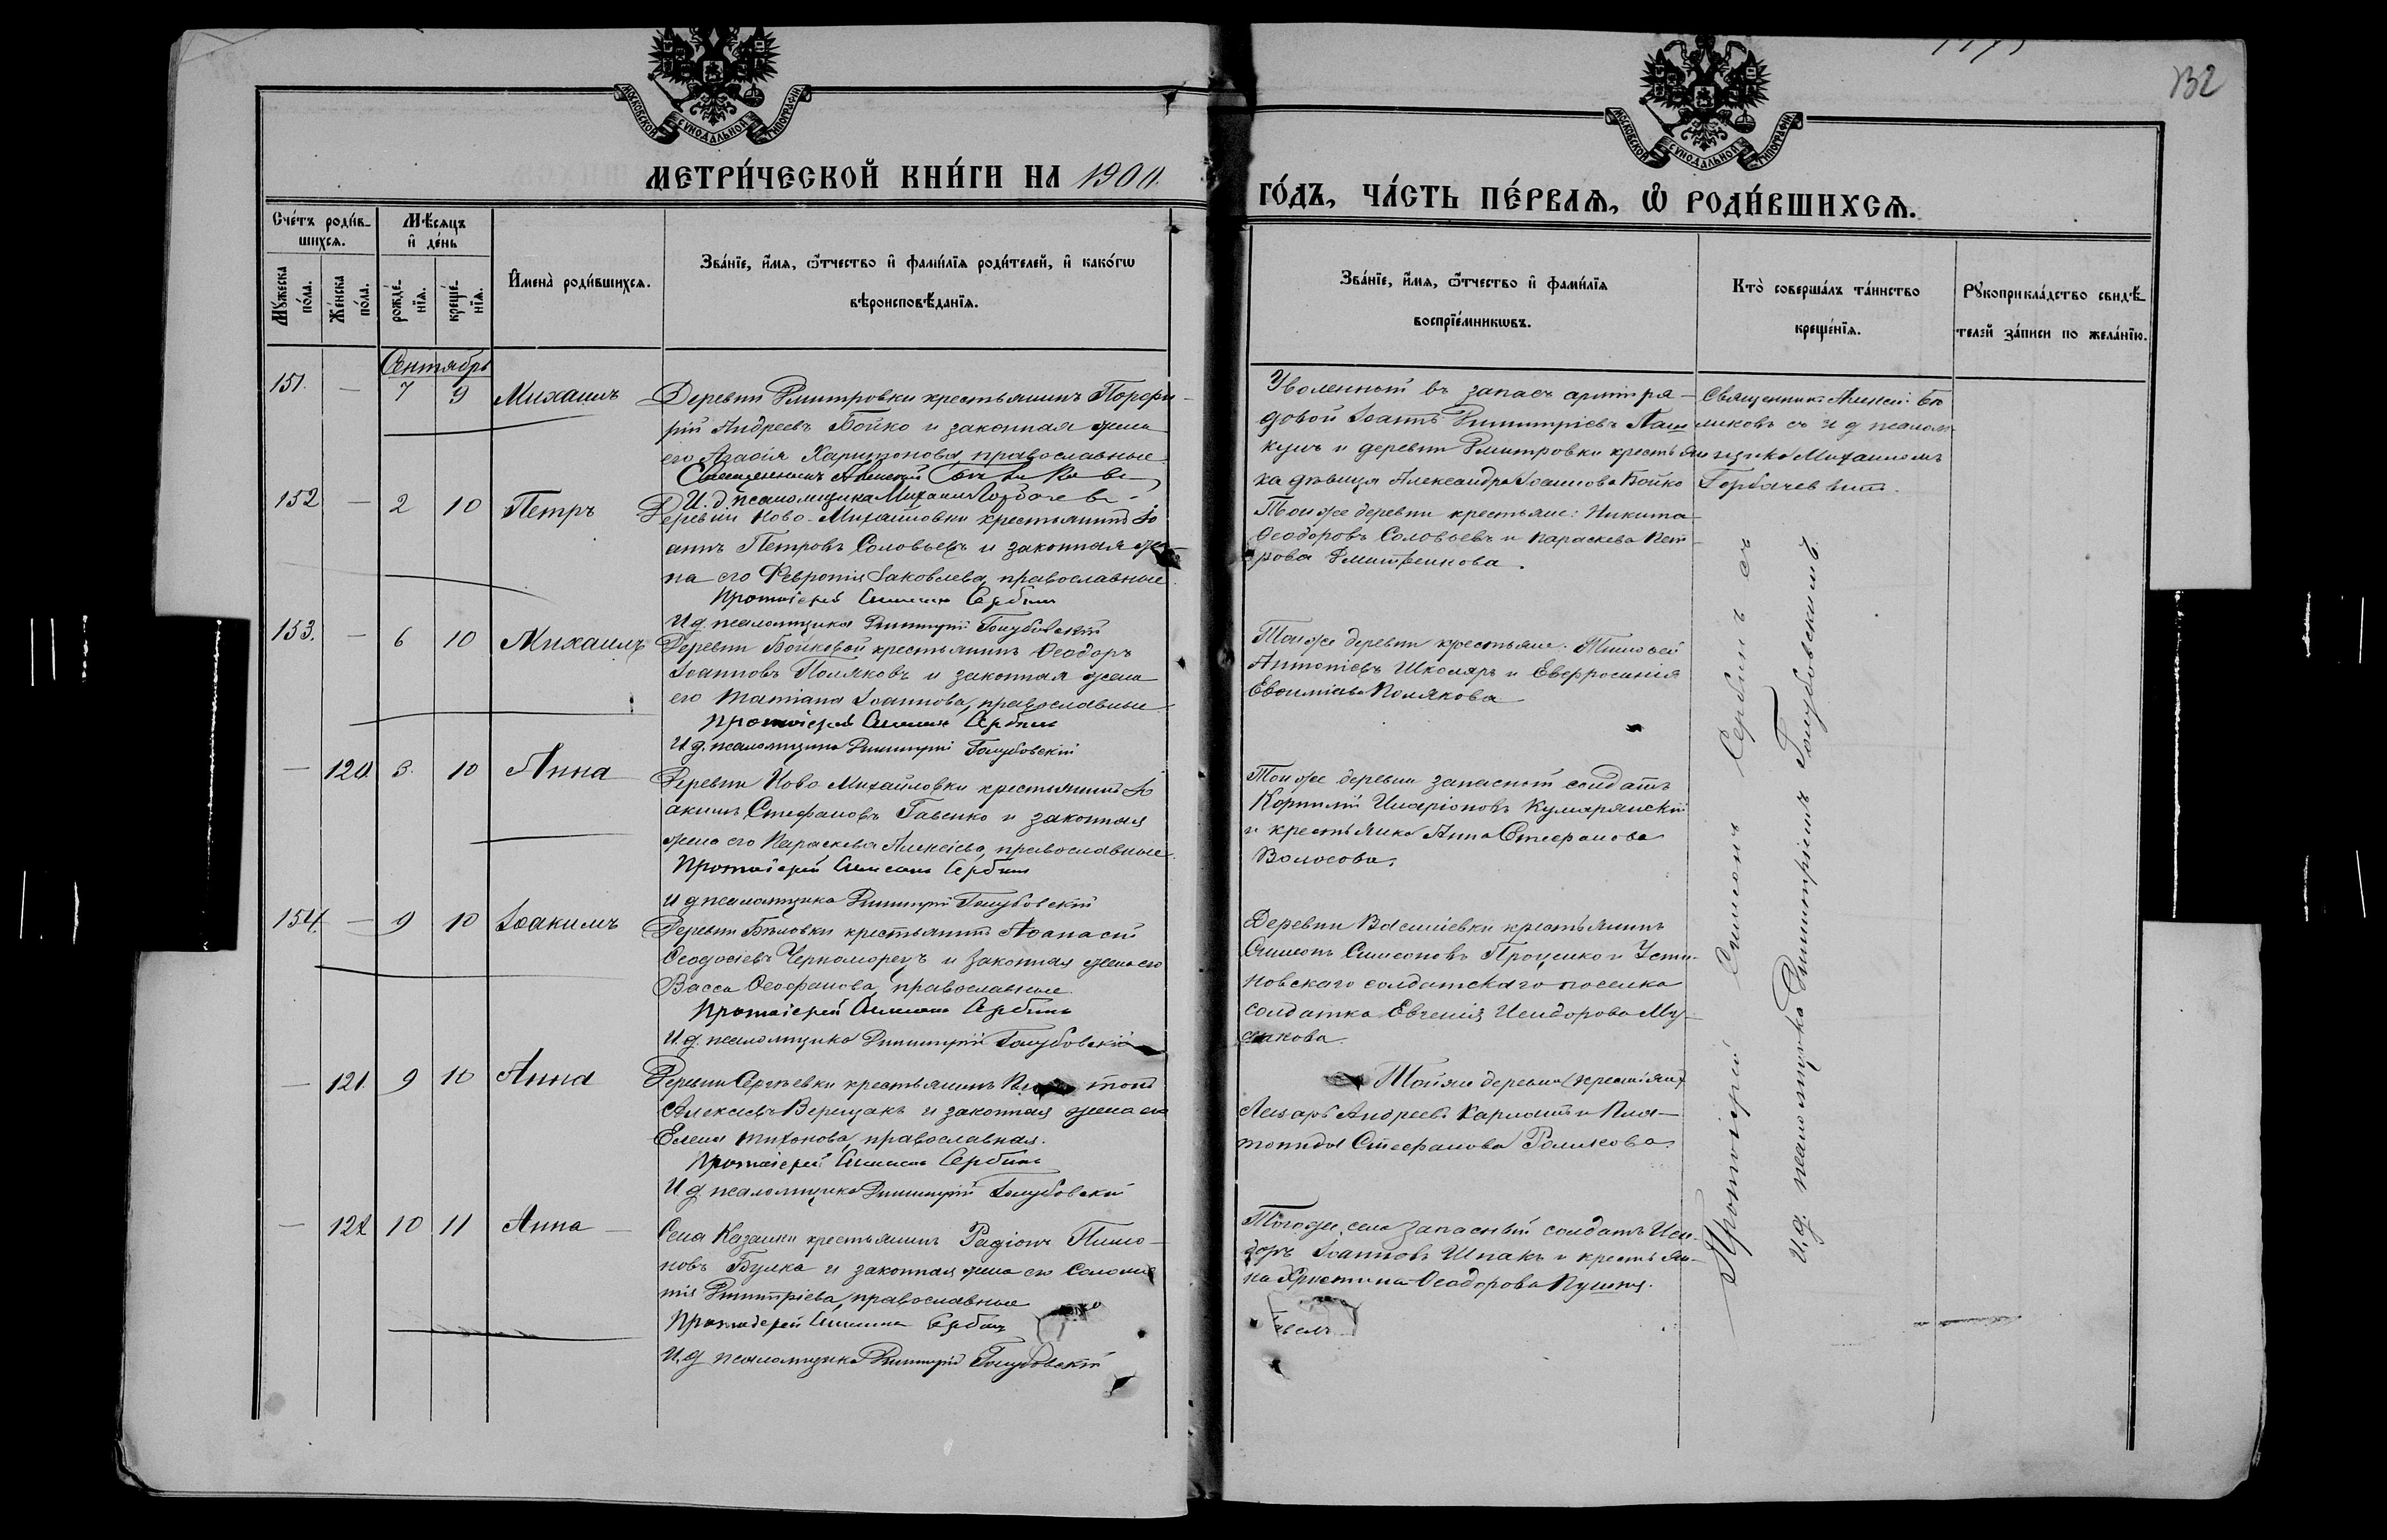 132
МОСКОВСКОЙ СѴНОДАЛЬНОЙ ТИПОГРАФІИ
МОСКОВСКОЙ СѴНОДАЛЬНОЙ ТИПОГРАФІИ
МЕТРИ́ЧЕСКОЙ КНИ́ГИ НА 1900.
ГО́ДЪ, ЧА́СТЬ ПЕ́РВАѦ, Ѡ҆ РОДИ́ВШИХСѦ.
Сче́тъ роди́в-
шихсѧ.
Мѣ́сѧцъ
и҆ де́нь
Мꙋ́жеска
по́ла.
Же́нска
по́ла.
рожде́-
нїѧ.
креще́-
нїѧ.
И҆мена̀ роди́вшихсѧ.
Зва́нїе, и҆́мѧ, ѻ҆́тчество и҆ фами́лїѧ роди́телей, и҆ како́гѡ
вѣроисповѣ́данїѧ.
Зва́нїе, и҆́мѧ, ѻ҆́тчество и҆ фами́лїѧ
воспрїе́мникѡвъ.
Кто̀ соверша́лъ та́инство
креще́нїѧ.
Рꙋкоприкла́дство свидѣ́-
телей за́писи по жела́нїю.
Сентябрь
151. — 7 9 Михаилъ
Деревни Дмитровки крестьянинъ Порфи-
рій Андреевъ Бойко и законная жена
его Агаѳія Харитонова, православные
Священникъ Алексій
И. д. псаломщика Михаилъ Горбачевъ
Уволенный въ запасъ арміи ря-
довой Іоаннъ Димитріевъ
и деревни Дмитровки крестьян-
ка дѣвица Александра Іоаннова Бойко
Священникъ Алексій
ликовъ съ и д псалом
щика Михаиломъ
Горбачевымъ.
152 — 2 10 Петръ
Деревни Ново-Михайловки крестьянинъ Іо
аннъ Петровъ Соловьевъ и законная же-
на его Февронія Іаковлева, православные
Протоіерей Симеонъ Сербинъ
И д. псаломщика Димитрій Голубовскій
Той же деревни крестьяне: Никита
Ѳеодоровъ Соловьевъ и Параскева Пет-
рова Дмитренкова.
153. — 6 10 Михаилъ
Деревни Бойковой крестьянинъ Ѳеодоръ
Іоанновъ Поляковъ и законная жена
его Татіана Іоаннова, православные
Протоіерей Симеонъ Сербинъ
И д. псаломщика Димитрій Голубовскій
Той же деревни крестьяне: Тимоѳей
Антоніевъ Школяръ и Евфросинія
Евѳиміева Полякова
— 120. 3. 10 Анна
Деревни Ново Михайловки крестьянинъ Іо
акимъ Стефановъ Гавенко и законная
жена его Параскева Алексіева, православные
Протоіерей Симеонъ Сербинъ
И д псаломщика Димитрій Голубовскій
Той же деревни запасный солдатъ
Корнилій Иларіоновъ Кумарянскій
и крестьянка Анна Стефанова
Волосова.
154. — 9 10 Іоакимъ
Деревни Бѣловки крестьянинъ Аѳанасій
Ѳеодосіевъ Черноморецъ и законная жена его
Васса Ѳеофанова, православные
Протоіерей Симеонъ Сербинъ
И.д. псаломщика Димитрій Голубовскій
Деревни Василіевки крестьянинъ
Симеонъ Симеоновъ Проценко и Усти-
новскаго солдатскаго поселка
солдатка Евгенія Исидорова
— 121. 9 10 Анна
Деревни Сергѣевки крестьянинъ
Алексіевъ Верещакъ и законная жена его
Елена Тихонова, православная.
Протоіерей Симеонъ Сербинъ
И д псаломщика Димитрій Голубовскій
Той же деревни крестьяне
Лазарь Андреевъ и Пла-
тонида Стефанова
— 122 10 11 Анна —
Села Казанки крестьянинъ Радіонъ
Булка и законная жена его Соломо
нія Димитріева, православные
Протоіерей Симеонъ Сербинъ
И,д псаломщика Димитрій Голубовскій
Того же села запасный солдатъ Иси-
доръ Іоанновъ Шпакъ и крестьян-
ка Христина Ѳеодорова
Протоіерей Симеонъ Сербинъ съ
и.д. псаломщика Димитріемъ Голубовскимъ.